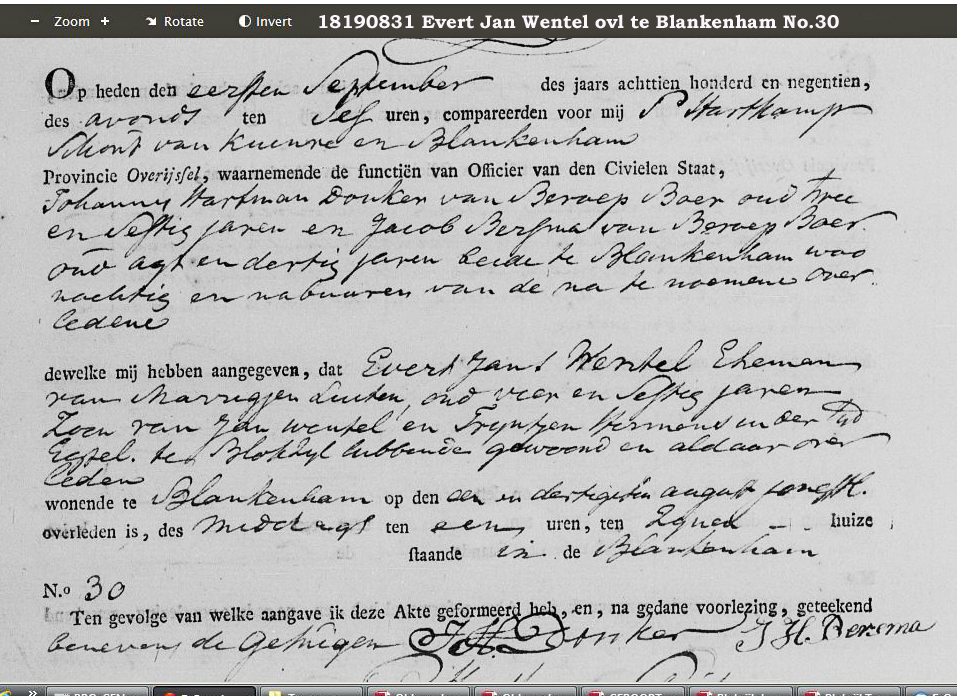 − Zoom + Rotate Invert 18190831 Evert Jan Wentel ovl te Blankenham No.30
Op heden den eersten September des jaars achttien honderd en negentien,
des avonds ten ses uren, compareerden voor mij P Hartkamp
Schout van Kuenre en Blankenham
Provincie Overijssel, waarnemende de functiën van Officier van den Civielen Staat,
Johannes Hartman Donker van Beroep Boer oud twee
en Sestig jaren en Jacob Bersma van Beroep Boer
oud agt en dertig jaren beide te Blankenham woo
nachtig en nabuuren van de na te noemene over
ledene
dewelke mij hebben aangegeven, dat Evert Jans Wentel Eheman
van Marrigjen Luiten, oud vier en Sestig jaren
Zoon van Jan wentel en Tryntjen Hermens in der tyd
te Blokzyl hebbende gewoond en aldaar over
leden
wonende te Blankenham op den een en dertigsten august jongstl.
overleden is, des middags ten een uren, ten huize
staande in de Blankenham
N.o 30
Ten gevolge van welke aangave ik deze Akte geformeerd heb, en, na gedane voorlezing, geteekend
benevens de Getuigen J H Donker J H. Bersma